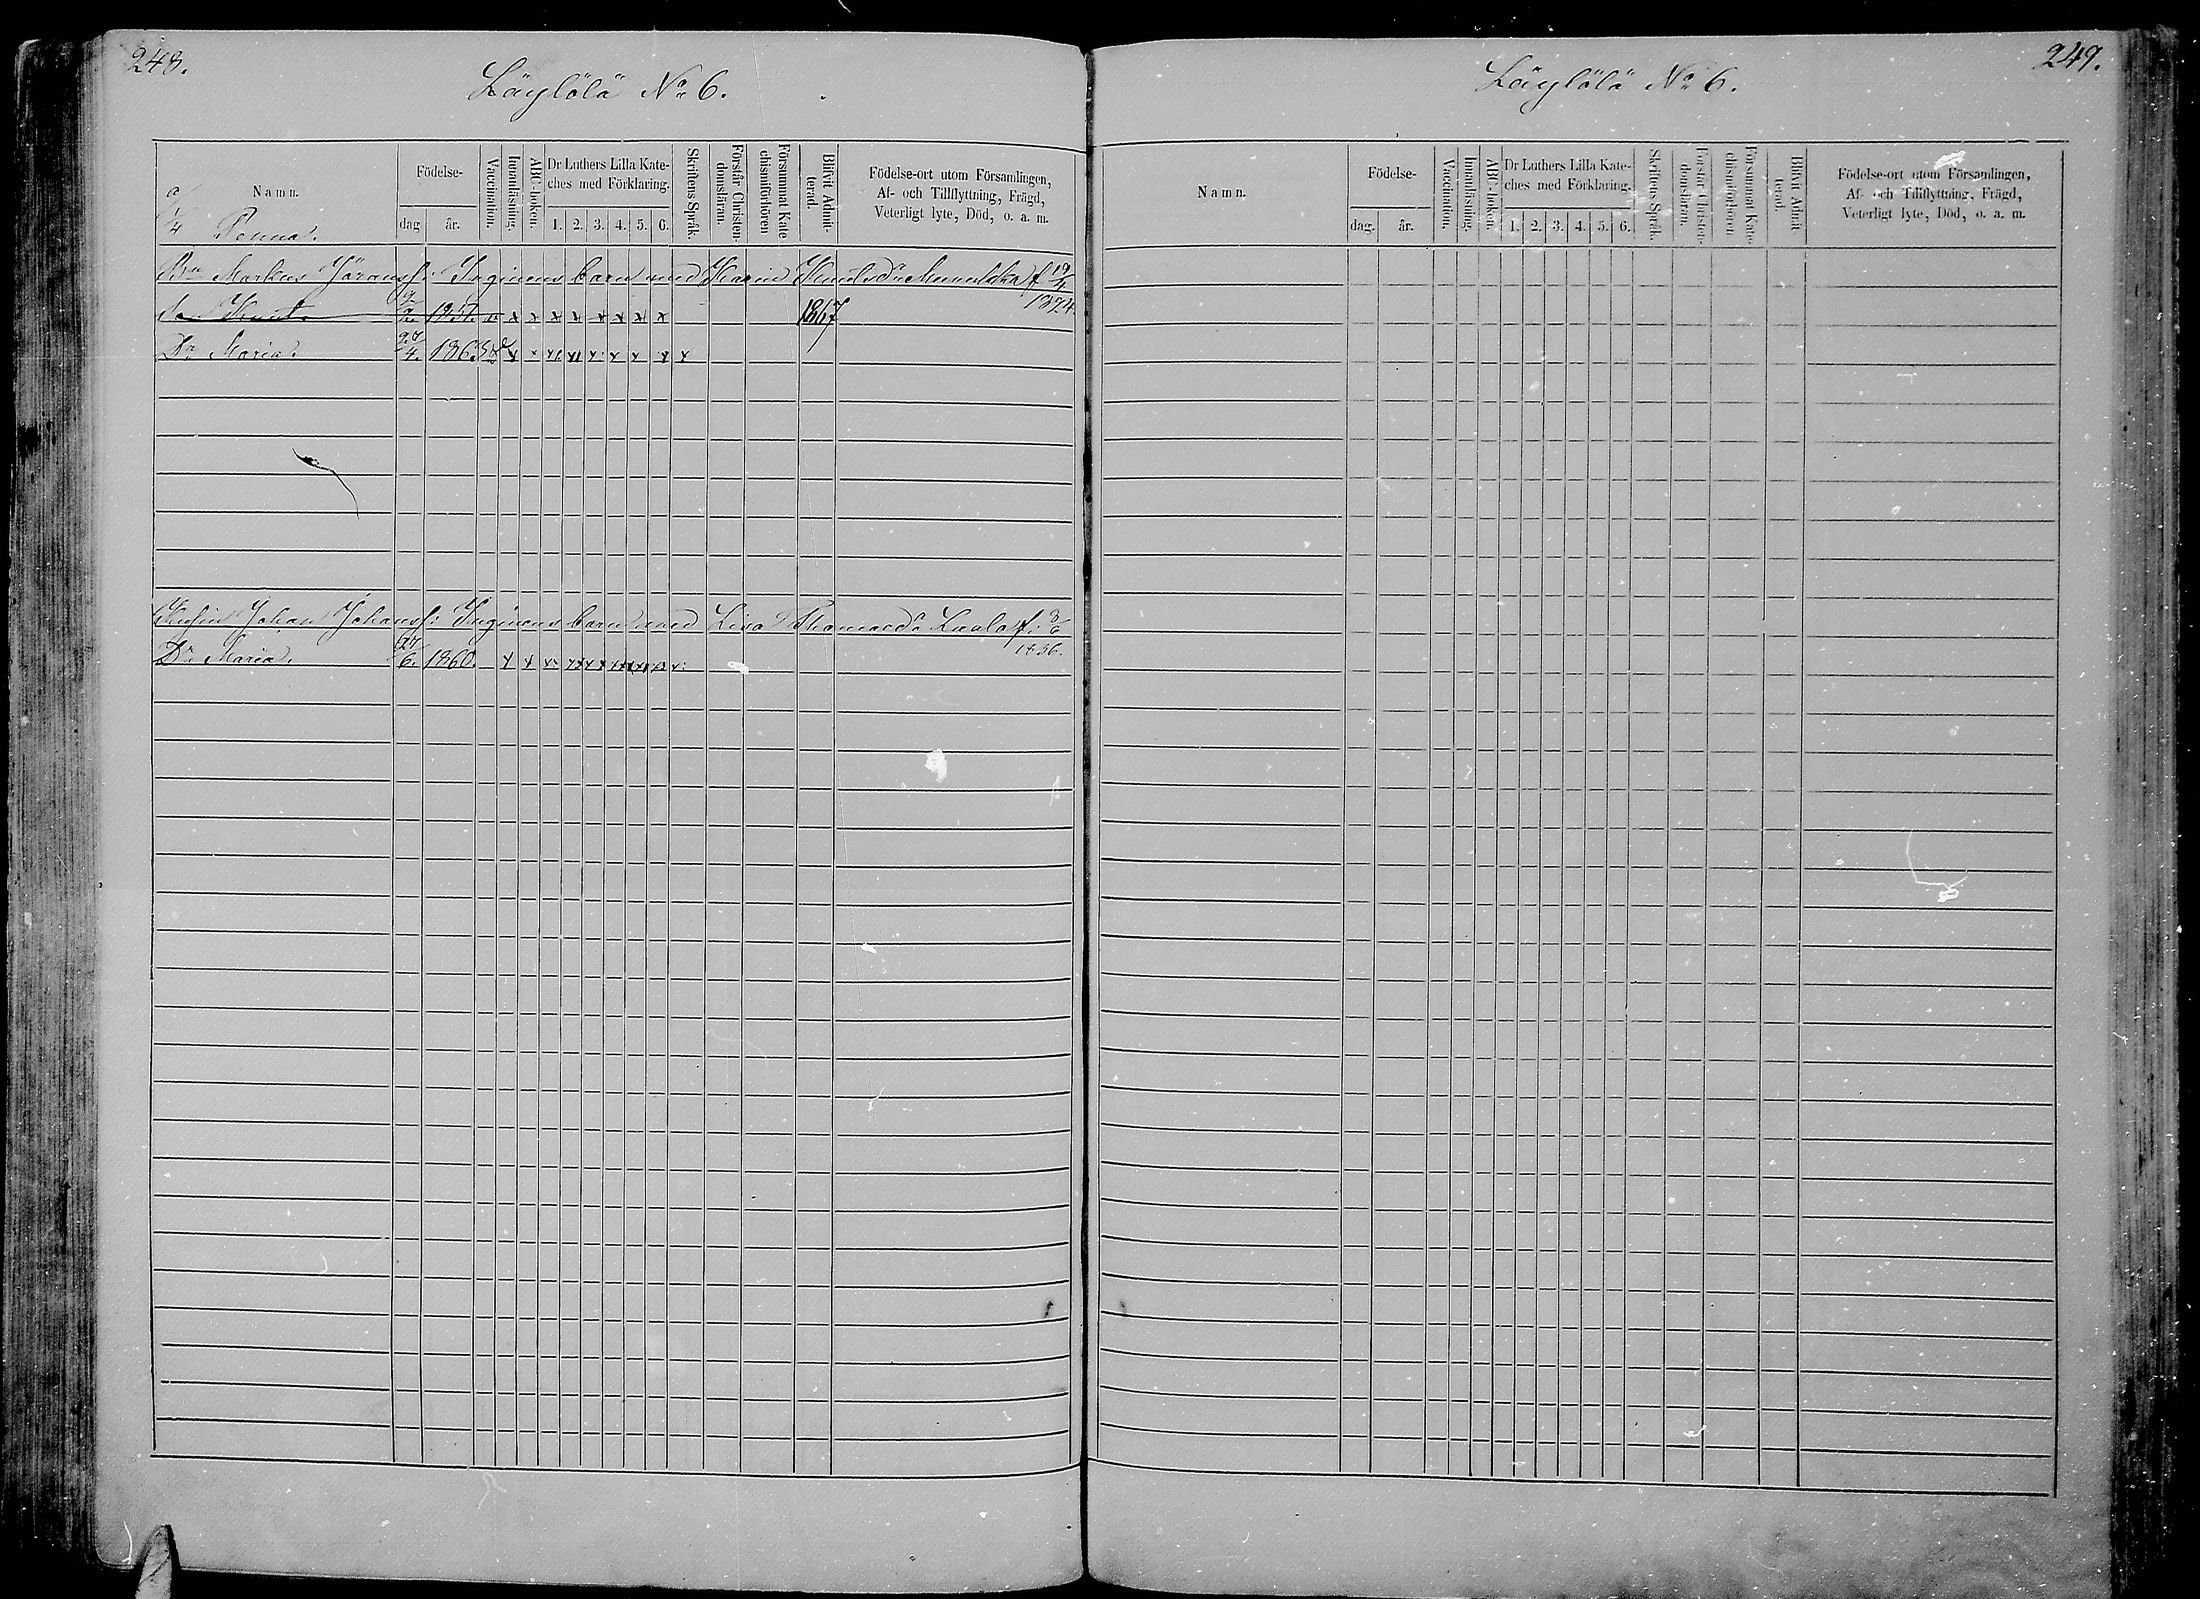 248.
Läylölä No 6.
Namn.
Födelse-
dag
år.
Vaccination.
Innanläsning.
ABC-boken.
Dr Luthers Lilla Kate-
ches med Förklaring.
1. 2. 3. 4. 5. 6.
Skriftens Språk.
Förstår Christen-
domsläran.
Försummat Kate
chismiförhören
Blifvit Admit-
terad.
Födelse-ort utom Församlingen,
Af- och Tillflyttning, Frägd,
Veterligt lyte, Död, o. a. m.
a/
1/4 Penna.
Markus Göranss: barn med Karin f 19/4
1824.
1851. x x x x x x x x 1867
Dr Maria. 4. x x x x x x x
Johan Johanss: barn med Lisa Thomasdr Laula f: 3/6
1836.
Dr Maria. 27/6. 1860. x x x
249.
Läylölä No 6.
Namn.
Födelse-
dag. år.
Vaccination.
Innanläsning.
ABC-boken.
Dr Luthers Lilla Kate-
ches med Förklaring.
1. 2. 3. 4. 5. 6.
Skriftens Språk.
Förstår Christen-
domsläran.
Försummat Kate-
chismiförhören
Blifvit Admit-
terad.
Födelse-ort utom Församlingen,
Af- och Tillflyttning, Frägd,
Veterligt lyte, Död, o. a. m.